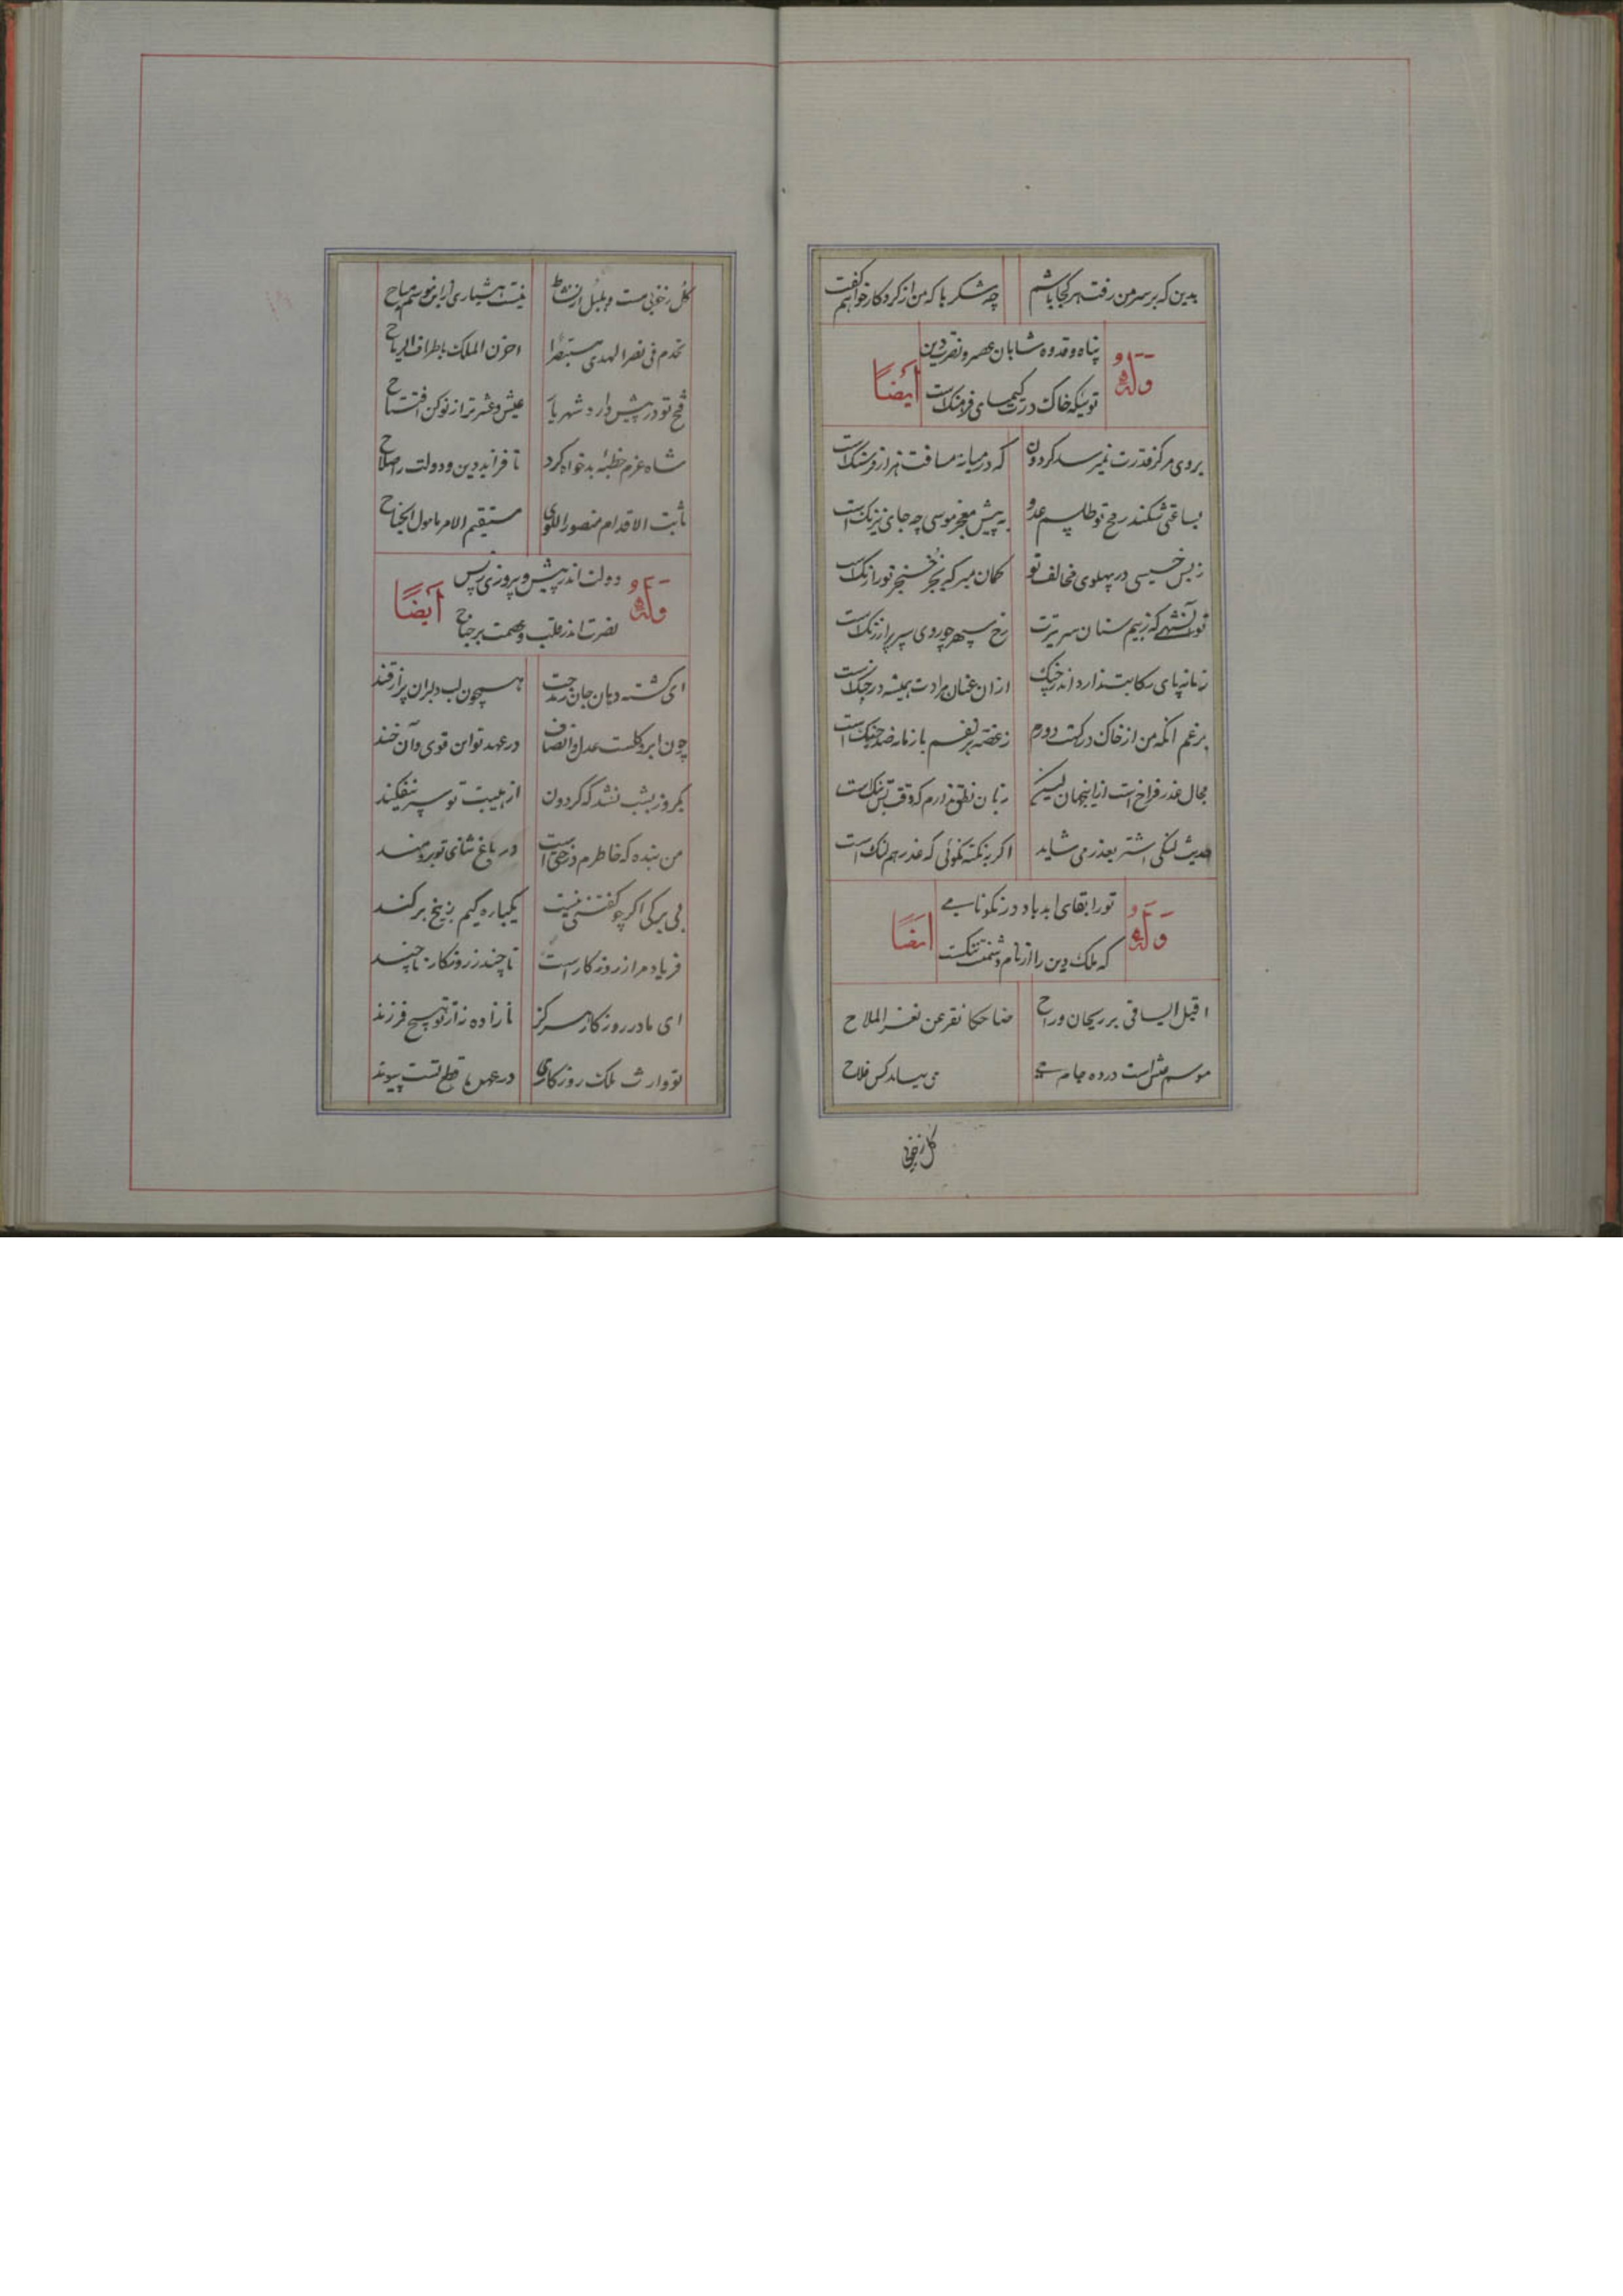 بدین که بر سر من رفت هر کجا باشم چه شکرها که من از کردکار خواهم کفت
وله ایضاً
پناه و قدوه شاهان عصر و نصرت دین
توئیکه خاک درت کیمیای فرهنگ است
بروی مرکز قدرت نمیرسد کردون که در میانه مسافت هزار فرسنک است
بساعتی شکند رمح تو طلسم عدو به پیش معجز موسی چه جای نیرنک است
زبس خسیسی در پهلوی مخالف تو کمان مبر که بجز خنجر تو را
تو آنشهی که زبیم سنان سر تیزت رخ سپهر چو روی سپر پر از رنک است
زمانه پای رکابت ندارد اندر جنک ازان عنان مرادت همیشه در چنک است
برغم انکه من از خاک درکهت دورم ز غصه هر نفسم با زمانه صد جنک است
مجال عذر فراخ است ازاینجهان لیکن زبان نطق ندارم که وقت بس تنک است
حدیث لنکی اشتر بعذر می شاید اکر به نکته نکوئی که عذر هم لنک است
وله ایضاً
تو را بقای ابد باد در نکونامی
که ملک دین را از نام دشمنت ننکست
اقبل الساقی بریحان و راح ضاحکا نفر عن ثغر الملاح
موسم عیش است درده جام می می کس فلاح
کل زخوبی
کل زخوبی مست و بلبل از نشاط نیست هشیاری در این موسم مباح
تخدم فی نصر الهدی مستبصرا احزن الملک باطراف الریاح
فتح تو در پیش دارد شهریار عیش و عشرت را ز نو کن افتتاح
شاه عزم خطبه بدخواه کرد تا فزاید دین و دولت را صلاح
ثابت الاقدام منصور اللوی مستقیم الامر مامول النجاح
وله ایضاً
دولت اندر پیش و پیروزی ز پس
نصرت اندر قلب و عصمت بر جناح
ای کشته دهان جان ز مدحت همچون لب دلبران پر از قند
چون ابر و کلست عدل و انصاف در عهد تو این قوی و آن خند
یکروز بشب نشد که کردون از هیبت تو سپر نیفکند
من بنده که خاطرم درختی است در باغ ثنای تو برومند
بی برکی اکرچه کفتنی نیست یکباره کیم ز بیخ برکند
فریاد مرا ز روزکار است تا چند ز روزکار تا چند
ای مادر روزکار هرکز نازاده نه از تو هیچ فرزند
تو وارث ملک روزکاری در عهد قطع تست پیوند